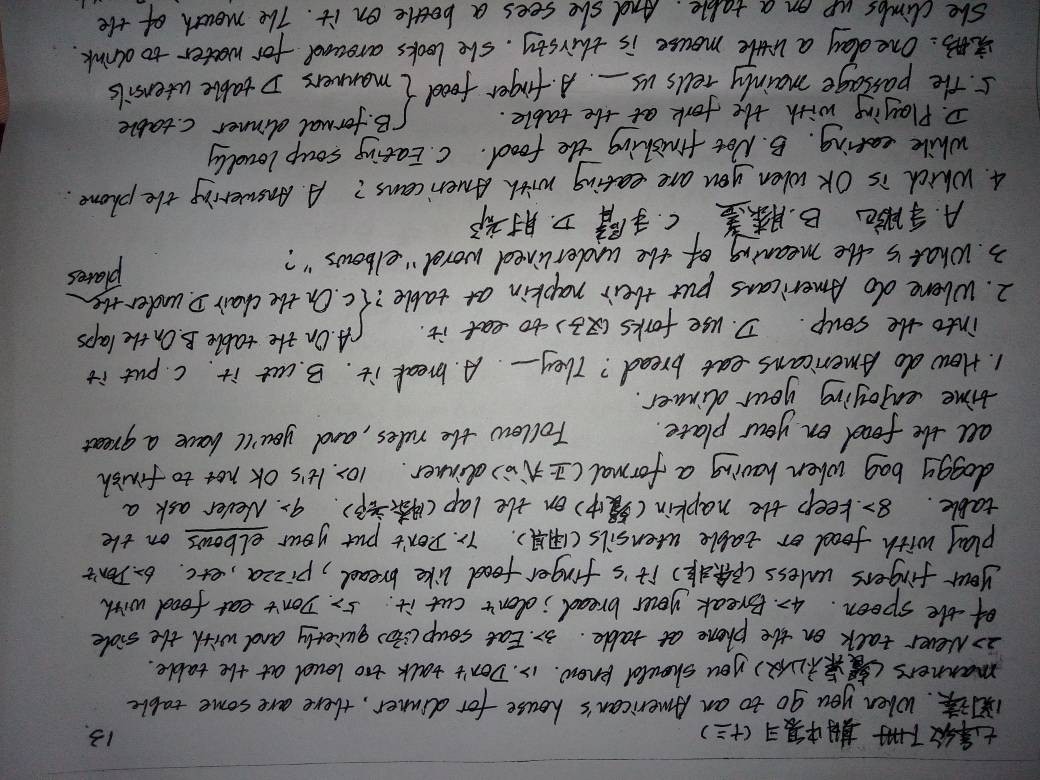 七年级下册 期中复习 (十三) 13
阅读. When you go to an American's house for dinner, there are some table
manners (餐桌礼仪) you should know. 1>. Don't talk too loud at the table.
2> Never talk on the phone at table. 3>. Eat soup (汤) quietly and with the side
of the spoon. 4>. Break your bread; don't cut it. 5>. Don't eat food with
your fingers unless (除非) it's finger food like bread, pizza, etc. 6>. Don't
play with food or table utensils (用具). 7>. Don't put your elbows on the
table. 8>. keep the napkin (餐巾) on the lap (膝部). 9>. Never ask a
doggy bag when having a formal (正式的) dinner. 10>. It's OK not to finish
all the food on your plate. Follow the rules, and you'll have a great
time enjoying your dinner.
1. How do Americans eat bread? They __. A. break it. B. cut it. C. put it
into the soup. D. use forks (叉子) to eat it.
2. Where do Americans put their napkin at table? { A. On the table B. On the laps C. On the chair D. under the plates
3. What's the meaning of the underlined word "elbows"?
A. B. 膝盖 C. D. 肘部
4. Which is OK when you are eating with Americans? A. Answering the phone
while eating. B. Not finishing the food. C. Eating soup loudly
D. Playing with the fork at the table.
5. The passage mainly tells us __. A. finger food { B. formal dinner C. table manners D table utensils
One day a little mouse is thirsty. She looks around for water to drink.
She climbs up on a table. And she sees a bottle on it. The mouth of the